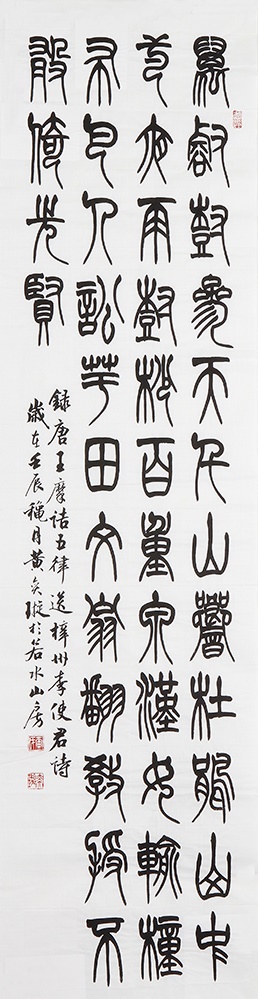 萬壑樹參天千山響杜鵑山中
一夜雨樹杪百重泉漢女輸橦
布巴人訟芋田文翁翻教授不
敢倚先賢
録唐王摩詰五律送梓州李使君詩
歲在壬辰穐月黃奐璇於若水山房